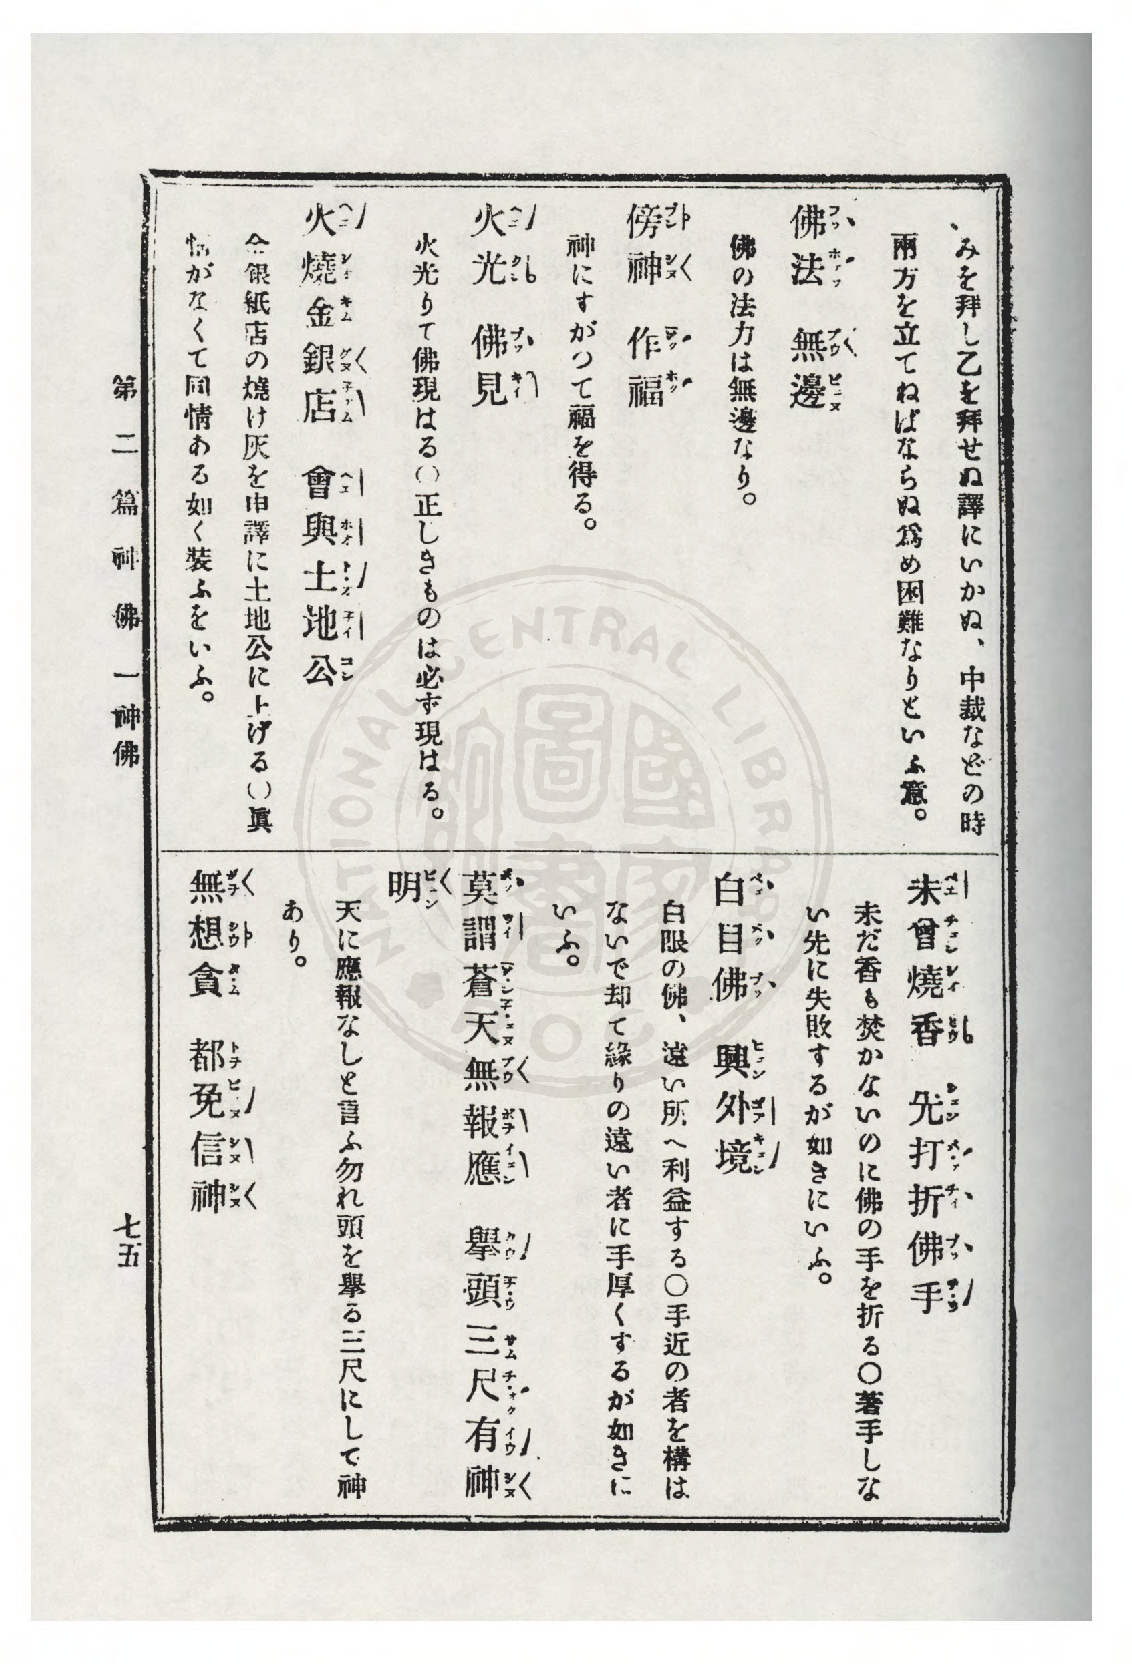 みを拜し乙を拜せぬ譯にいかぬ、中裁などの時
兩方を立てねばならぬ爲め困難なりといふ意。
佛法 無邊
佛の法力は無邊なり。
傍神 作福
神にすがつて福を得る。
火光 佛見
火光りて佛現はる〇正しきものは必ず現はる。
火燒金銀店 會與土地公
金銀紙店の燒け灰を申譯に土地公に上げる〇眞
情がなくて同情ある如く裝ふをいふ。
未曾燒香 先打折佛手
未だ香も焚かないのに佛の手を折る〇著手しな
い先に失敗するが如きにいふ。
白目佛 興外境
白眼の佛、遠い所へ利益する〇手近の者を構は
ないで却て緣りの遠い者に手厚くするが如きに
いふ。
莫謂蒼天無報應 擧頭三尺有神
明
天に應報なしと言ふ勿れ頭を擧る三尺にして神
あり。
無想貪 都免信神
第二篇 神佛 一神佛
七五
NATIONAL CENTRAL LIBRARY
ROC
國家圖書館